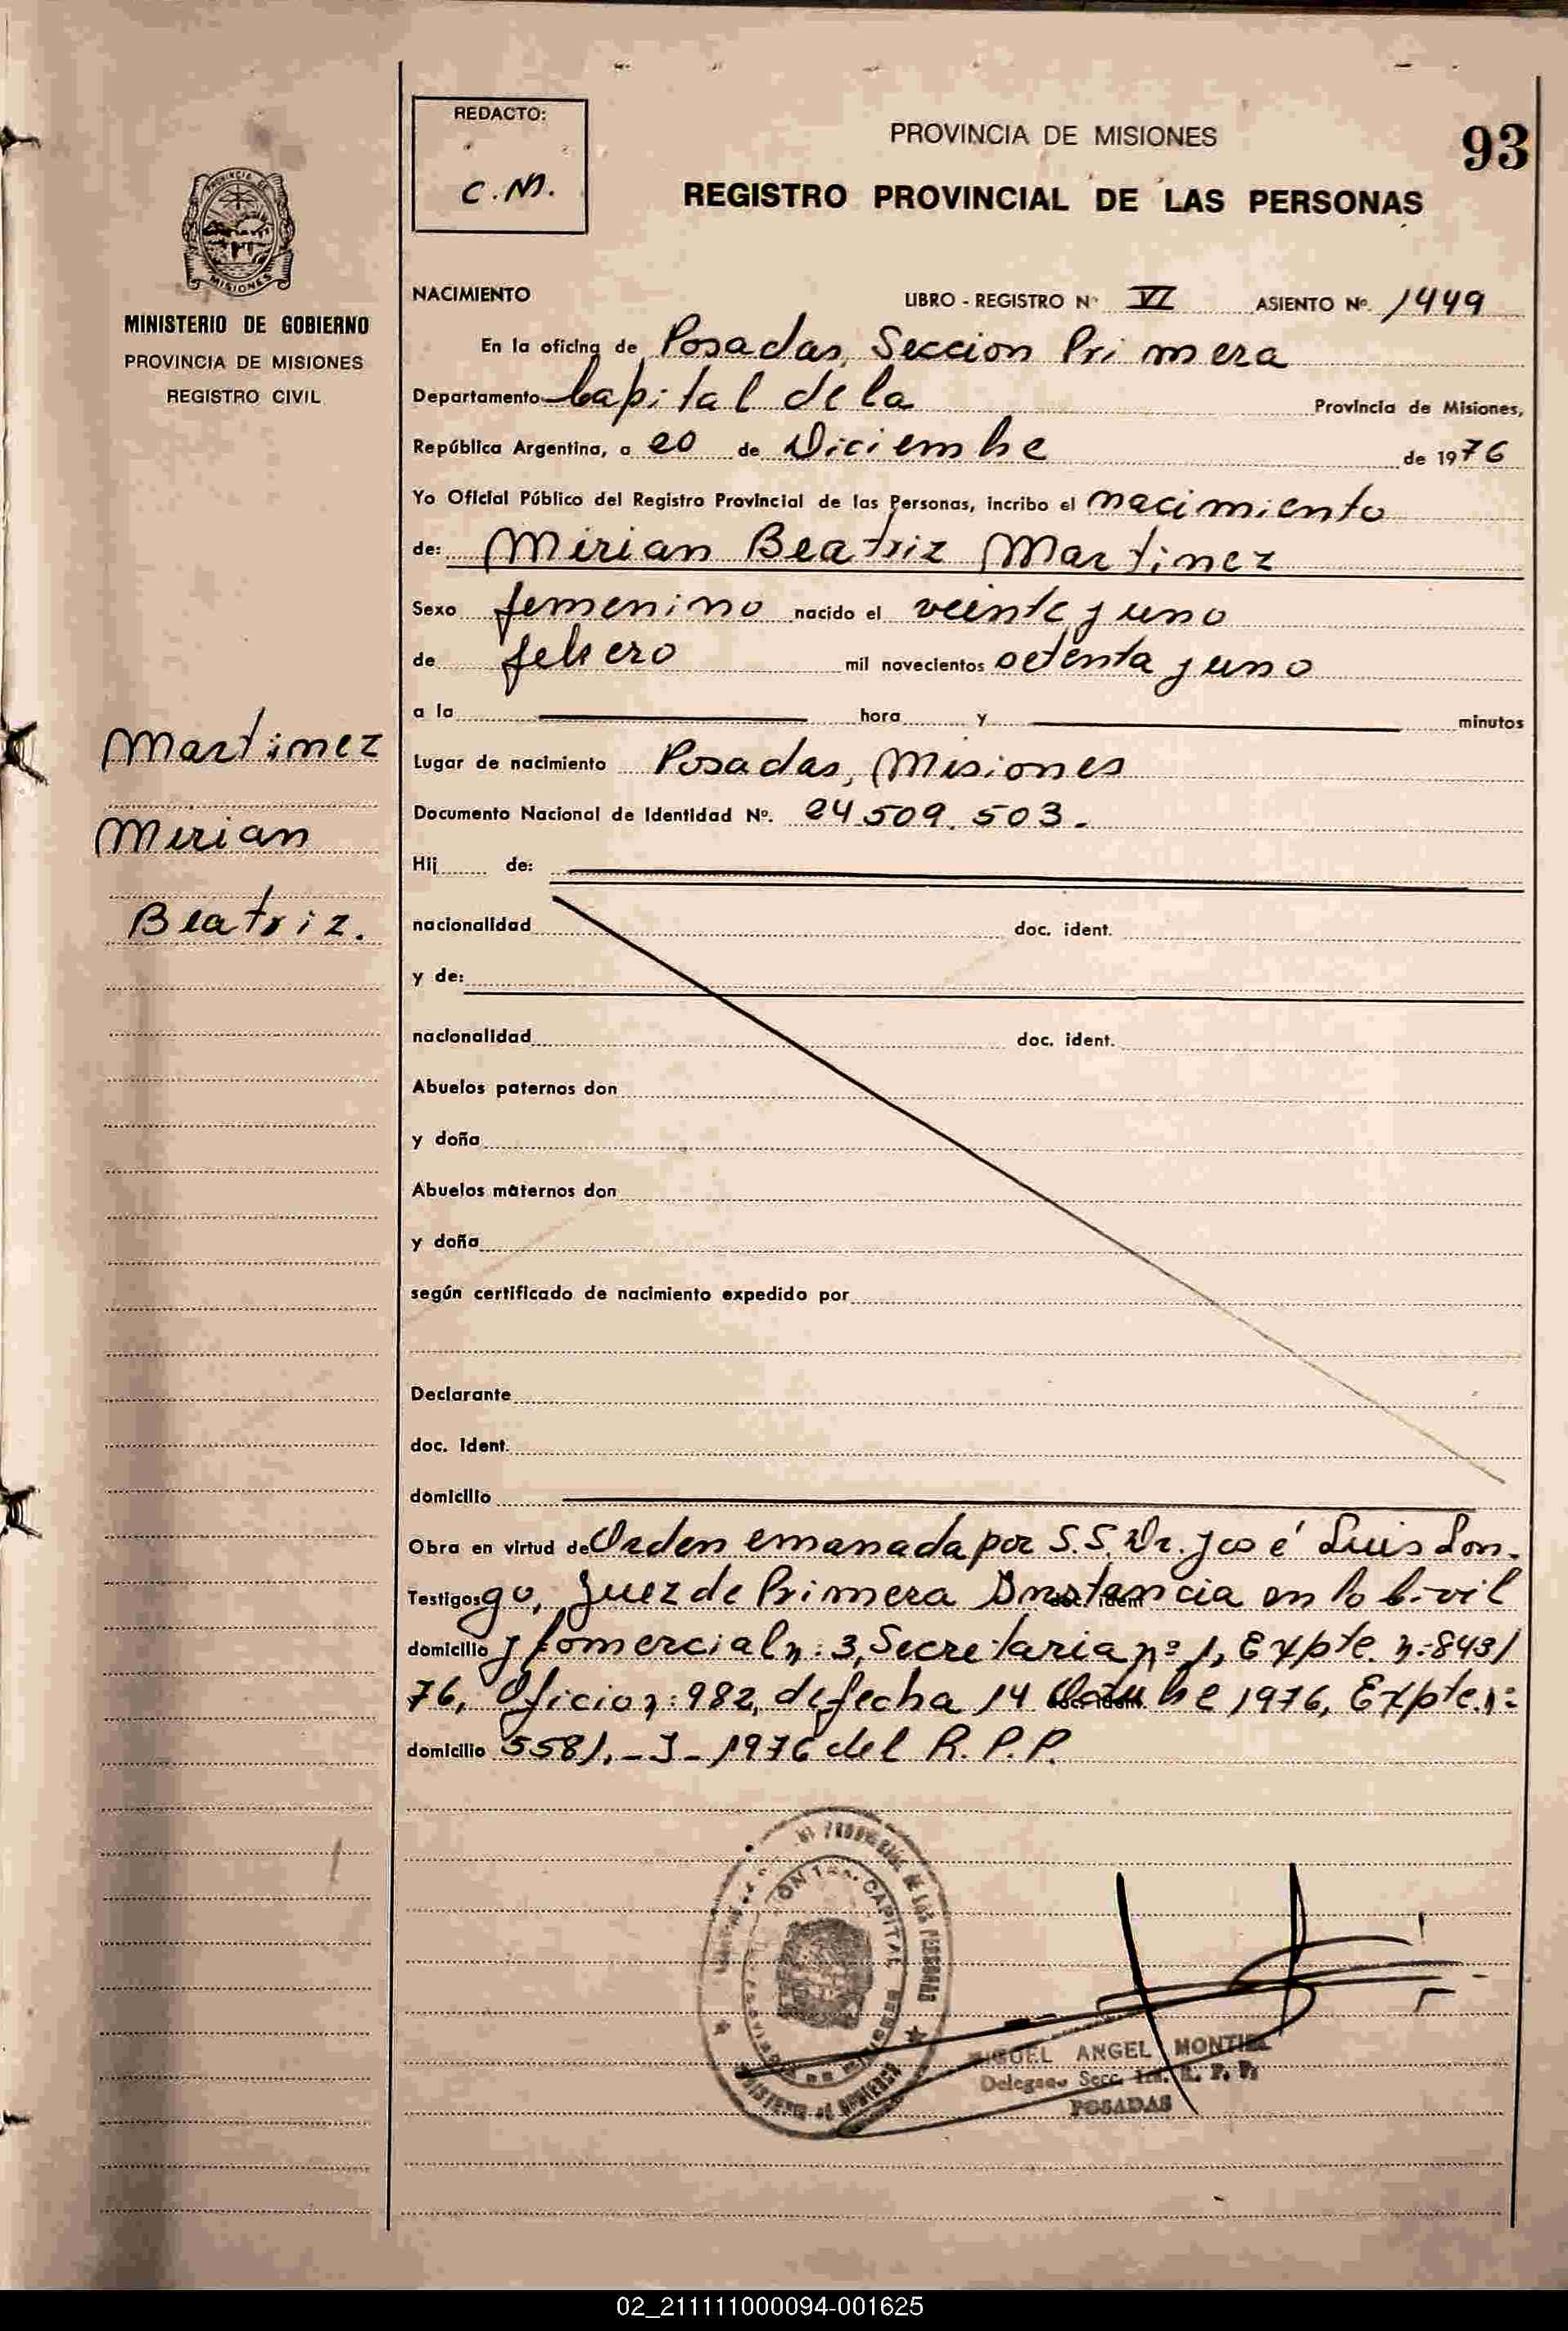 REDACTO:
C. M.
PROVINCIA DE MISIONES
93
REGISTRO PROVINCIAL DE LAS PERSONAS
PROVINCIA DE
MISIONES
MINISTERIO DE GOBIERNO
PROVINCIA DE MISIONES
REGISTRO CIVIL
Martinez
Mirian
Beatriz.
NACIMIENTO LIBRO - REGISTRO Nº VI ASIENTO Nº. 1449
En la oficina de Posadas, Seccion Primera
Departamento Capital de la Provincia de Misiones,
República Argentina, a 20 de Diciembre de 1976
Yo Oficial Público del Registro Provincial de las Personas, incribo el nacimiento
de: Mirian Beatriz Martinez
Sexo femenino nacido el veinte y uno
de febrero mil novecientos setenta y uno
a la hora y minutos
Lugar de nacimiento Posadas, Misiones
Documento Nacional de Identidad Nº. 24.509.503.-
Hij de:
nacionalidad doc. ident.
y de:
nacionalidad doc. ident.
Abuelos paternos don
y doña
Abuelos maternos don
y doña
según certificado de nacimiento expedido por
Declarante
doc. Ident.
domicilio
Obra en virtud de Orden emanada por S.S. Dr. José Luis Lon-
Testigos go, Juez de Primera Instancia en lo Civil
domicilio y Comercial nº 3, Secretaria nº 1, Expte. nº 843/
76, Oficio nº 982, de fecha 14 Octubre 1976, Expte. nº
domicilio 5581,-J-1976 del R.P.P.
CAPITAL
MIGUEL ANGEL MONTIEL
Delegado Secc. 1ra. R. P. P.
POSADAS
02_211111000094-001625